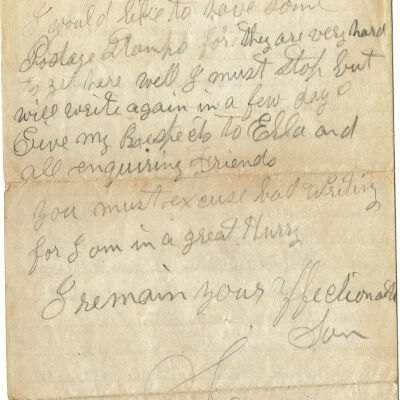 I would like to have some
Postage Stamps for they are very hard
to get here well I must Stop but
will write again in a few days
Give my Respects to Ella and
all enquiring Friends
you must excuse bad writing
for I am in a great Hurry
I remain your Affectionate
Son